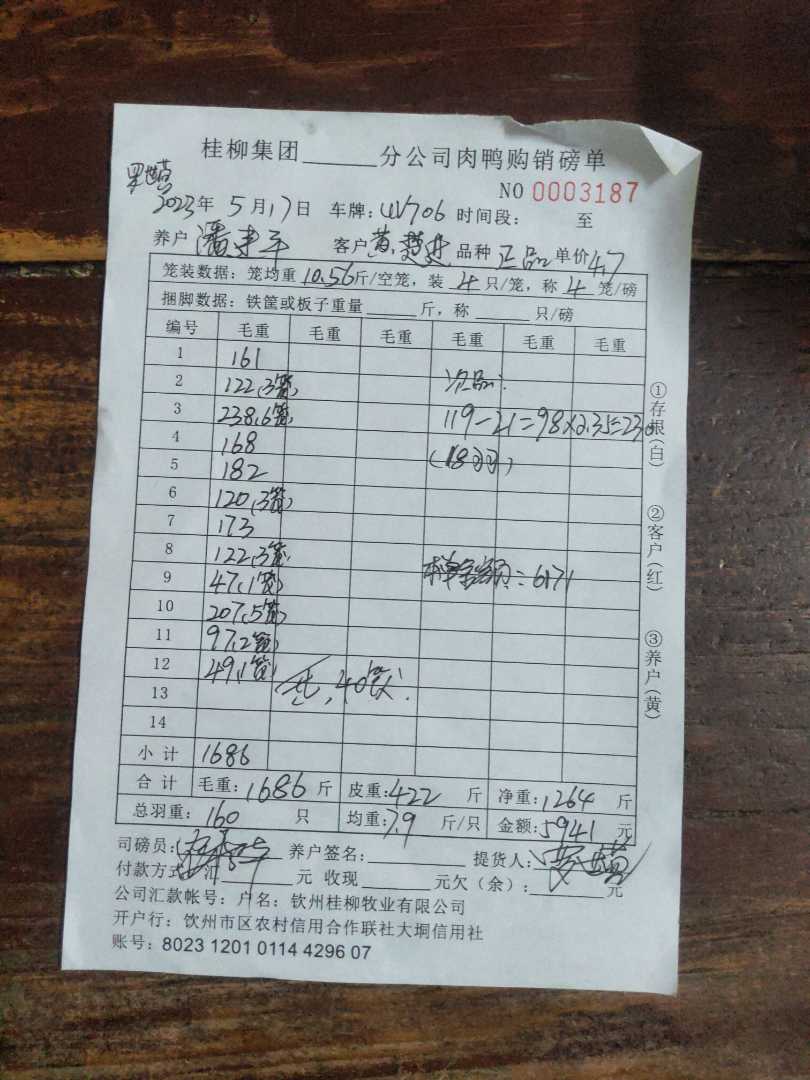 桂柳集团______分公司肉鸭购销磅单
NO 0003187
2023年 5月17日 车牌:UV706 时间段: 至
养户 潘 平 客户 黄 品种 正品 单价4.7
笼装数据:笼均重 10.56斤/空笼,装 4 只/笼,称 4 笼/磅
捆脚数据:铁筐或板子重量______斤,称______只/磅
编号 毛重 毛重 毛重 毛重 毛重 毛重
1 161
2 122,3笼, 次品:
3 238,6笼, 119-21=98×2.35=230
4 168 (18羽)
5 182
6 120,3笼,
7 173
8 122,3笼,
9 47,1笼, 本单金额:=6171
10 207,5笼,
11 97,2笼,
12 49,1笼, 毛,40笼.
13
14
小计 1686
合计 毛重:1686 斤 皮重:422 斤 净重:1264 斤
总羽重: 160 只 均重:7.9 斤/只 金额:5941 元
司磅员: 养户签名:______ 提货人:
付款方式:汇______元 收现______元欠(余):______元
公司汇款帐号:户名:钦州桂柳牧业有限公司
开户行:钦州市区农村信用合作联社大垌信用社
账号:8023 1201 0114 4296 07
①存根(白)
②客户(红)
③养户(黄)